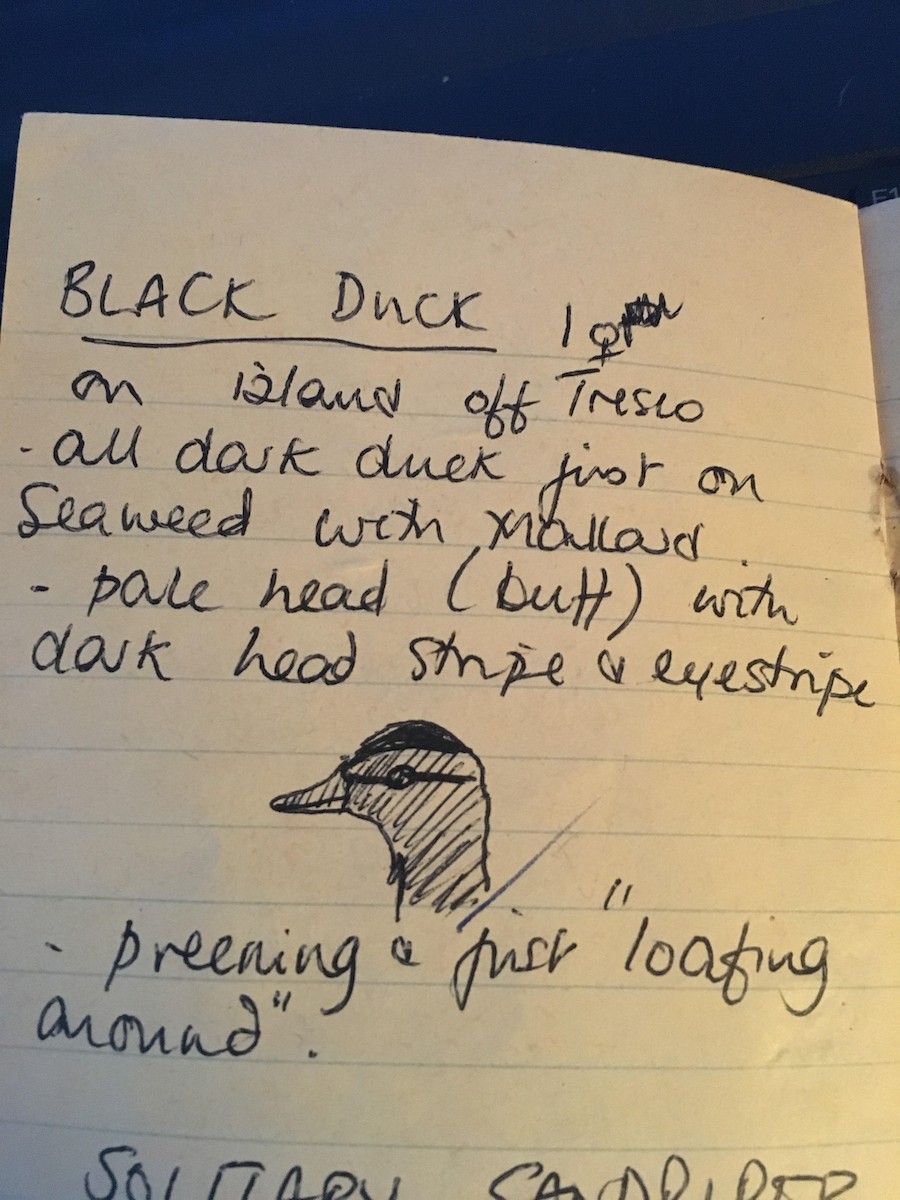 BLACK DUCK 1 ♀
on island off Tresco
- all dark duck just on
Seaweed with Mallard.
- pale head (buff) with
dark head stripe & eyestripe
- preening & just "loafing
around".
SOLITARY SANDPIPER